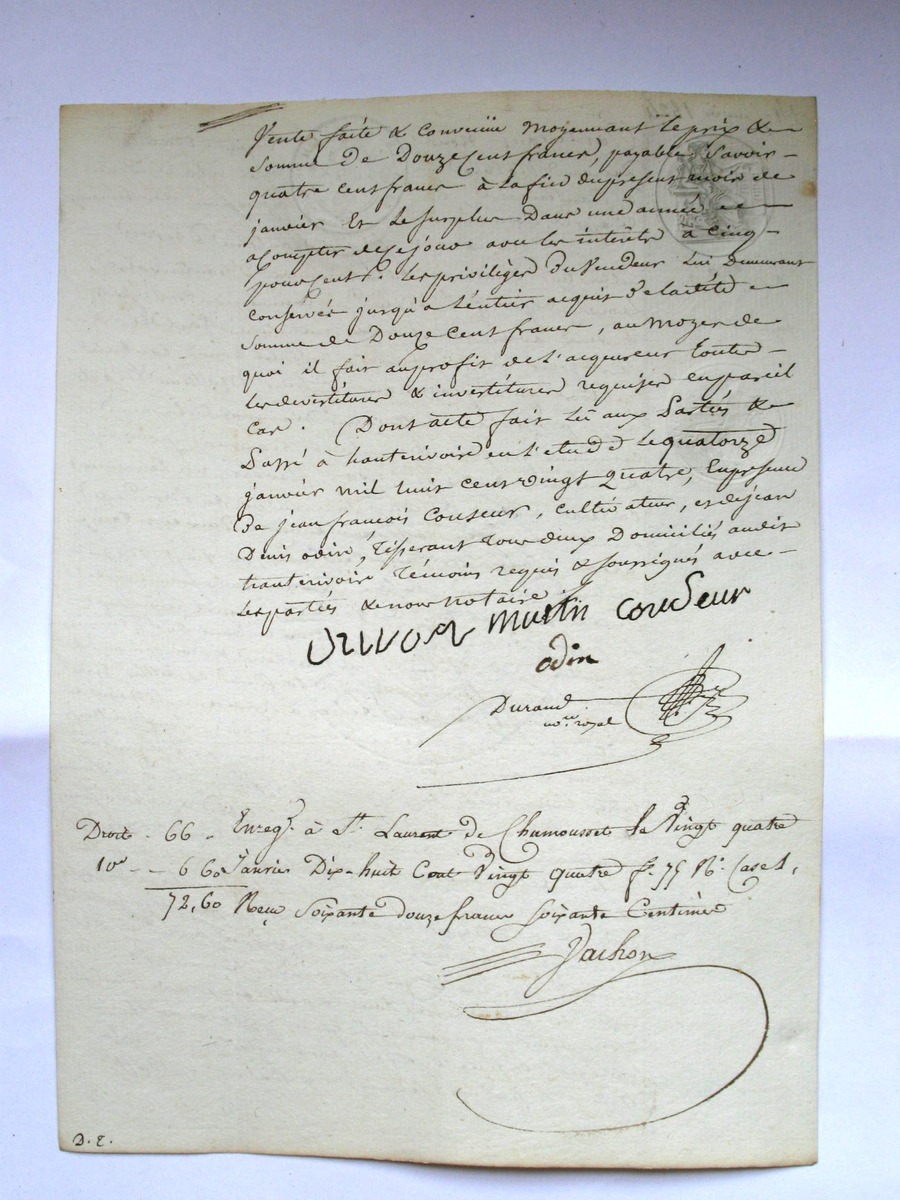 Vente faite & convenüe moyennant le prix &
somme de Douze Cent francs, payables Savoir
quatre cent francs à la fin du present mois de
janvier Et Le surplus Dans une année
a compter de ce jour avec les intérêts à Cinq
pour Cent. Les privilèges Du Vendeur Lui Demeurant
conservés jusqu'à L'entier acquit de la dite
somme de Douze Cent francs, au moyen de
quoi il fait au profit de L'acquereur toutes
Les devestitures & investitures requises en pareil
Cas. Dont acte fait Lû aux Parties &
Passé à hauterivoire en L'etude Le quatorze
janvier mil huit cent vingt quatre, En presence
De jean francois Couseur, cultivateur, et de jean
Denis odin, Tisserant Tous deux Domiciliés audit
hauterivoire Témoins requis & soussignés avec
Les parties & nous notaire
martin couseur
odin
Durand
no.re royal
Droit - 66 - Enreg.é à S.t Laurent de Chamousset le Vingt quatre
10e - 6 60 Janvier Dix-huit Cent Vingt quatre f.o 75 R.o Case 1,
72,60 Reçu Soixante douze francs soixante Centimes
Vachon
D. E.